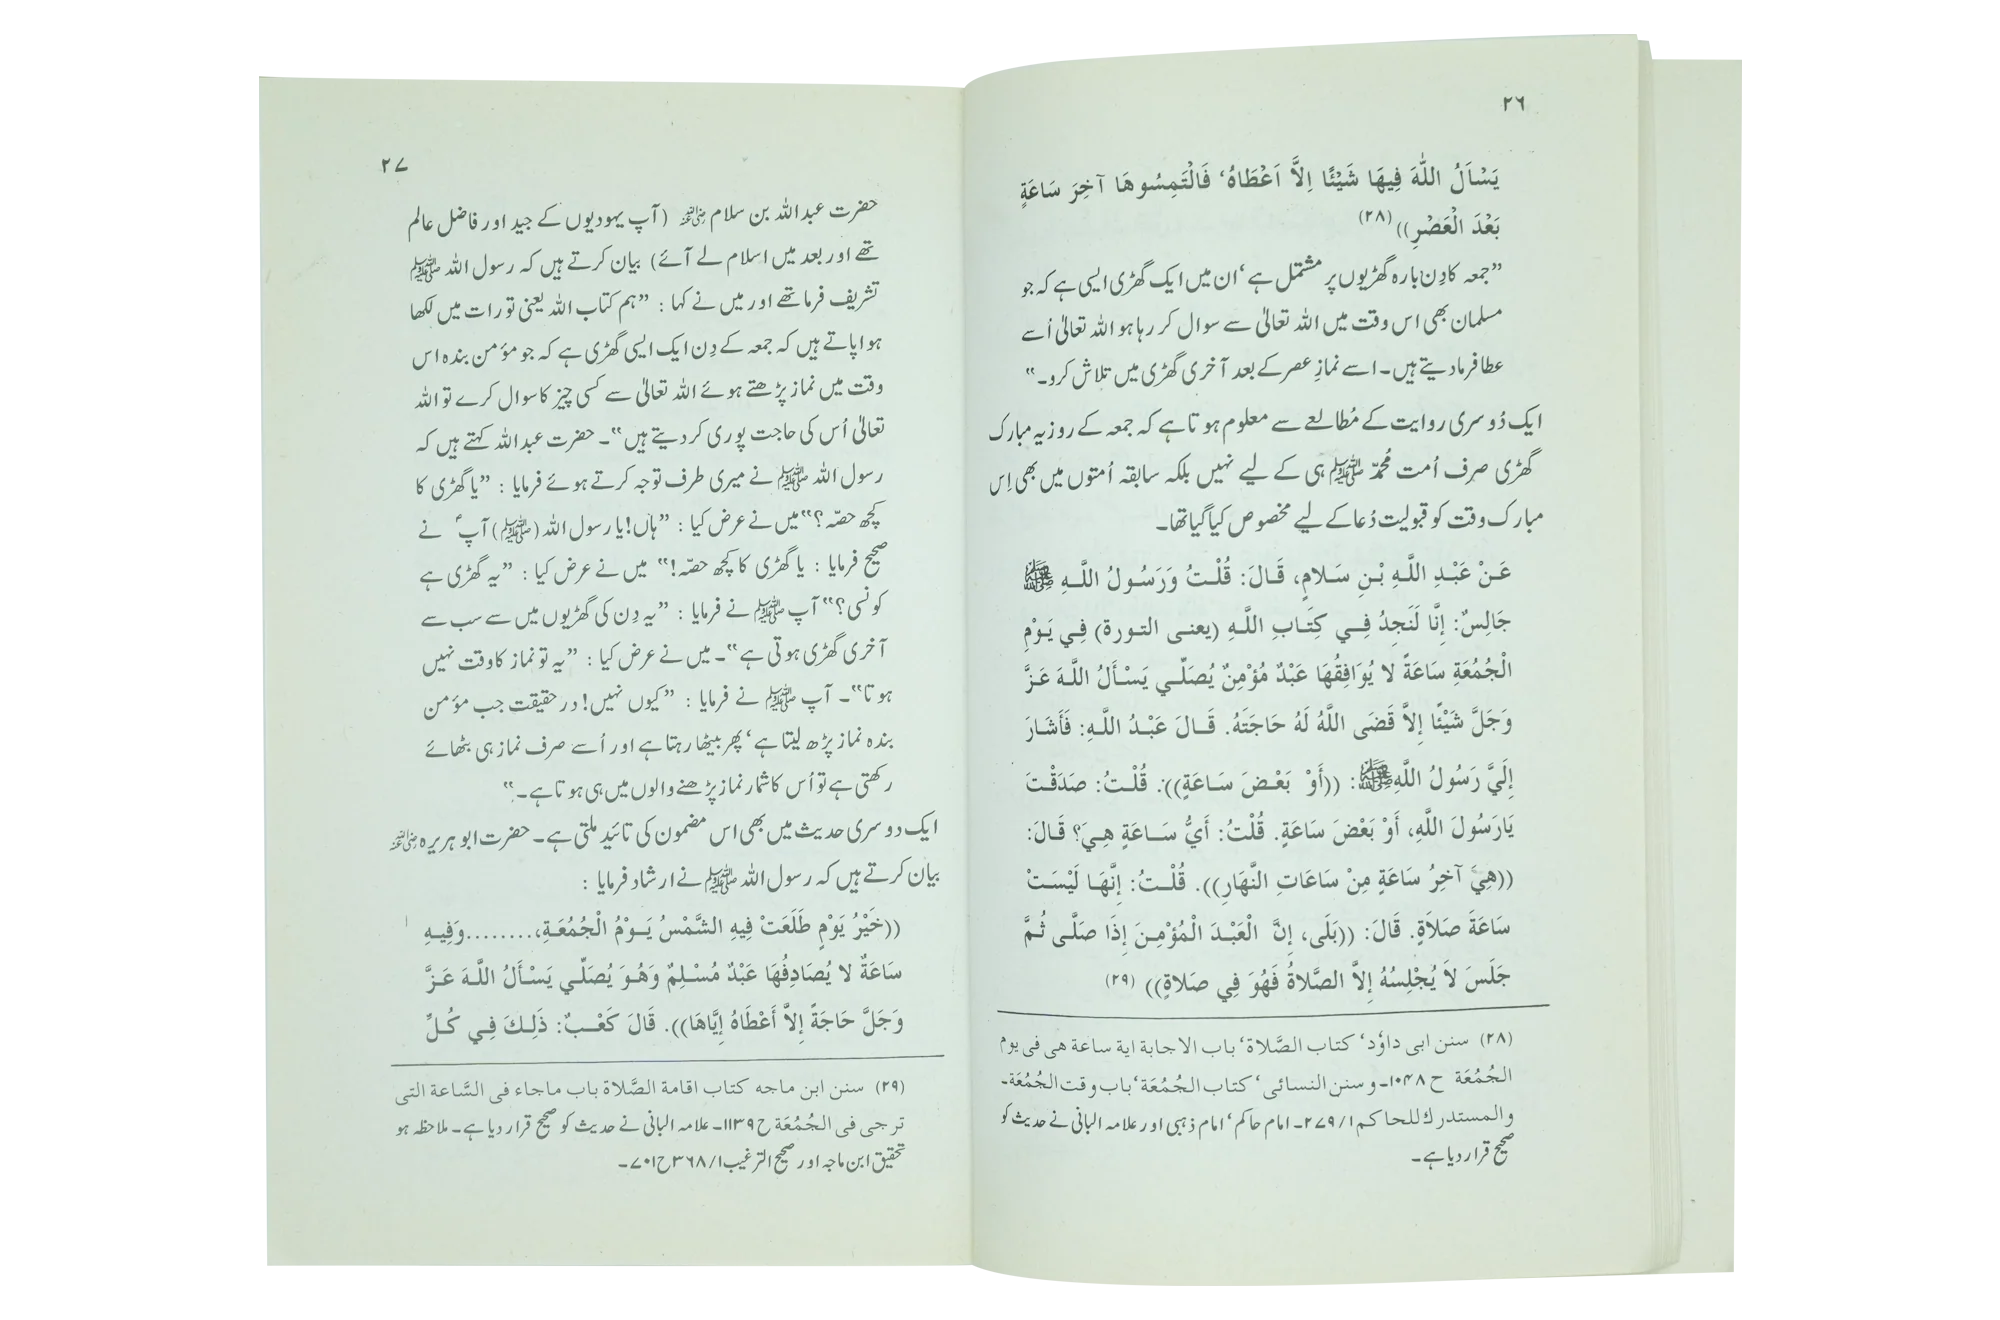 ٢٦
يَسْأَلُ اللّٰهَ فِيهَا شَيْئًا اِلاَّ اَعْطَاهُ، فَالْتَمِسُوهَا آخِرَ سَاعَةٍ
بَعْدَ الْعَصْرِ)) (٢٨)
”جمعہ کا دِن بارہ گھڑیوں پر مشتمل ہے‘ ان میں ایک گھڑی ایسی ہے کہ جو
مسلمان بھی اس وقت میں اللہ تعالیٰ سے سوال کر رہا ہو اللہ تعالیٰ اُسے
عطا فرما دیتے ہیں۔ اسے نمازِ عصر کے بعد آخری گھڑی میں تلاش کرو۔“
ایک دُوسری روایت کے مُطالعے سے معلوم ہوتا ہے کہ جمعہ کے روز یہ مبارک
گھڑی صرف اُمت مُحمّد ﷺ ہی کے لیے نہیں بلکہ سابقہ اُمتوں میں بھی اِس
مبارک وقت کو قبولیت دُعا کے لیے مخصوص کیا گیا تھا۔
عَنْ عَبْدِ اللَّهِ بْنِ سَلامٍ، قَالَ: قُلْتُ وَرَسُولُ اللَّهِ ﷺ
جَالِسٌ: إِنَّا لَنَجِدُ فِي كِتَابِ اللَّهِ (يعنى التورة) فِي يَوْمِ
الْجُمُعَةِ سَاعَةً لا يُوَافِقُهَا عَبْدٌ مُؤْمِنٌ يُصَلِّي يَسْأَلُ اللَّهَ عَزَّ
وَجَلَّ شَيْئًا إِلاَّ قَضَى اللَّهُ لَهُ حَاجَتَهُ. قَالَ عَبْدُ اللَّهِ: فَأَشَارَ
إِلَيَّ رَسُولُ اللَّهِ ﷺ: ((أَوْ بَعْضَ سَاعَةٍ)). قُلْتُ: صَدَقْتَ
يَارَسُولَ اللَّهِ، أَوْ بَعْضَ سَاعَةٍ. قُلْتُ: أَيُّ سَاعَةٍ هِيَ؟ قَالَ:
((هِيَ آخِرُ سَاعَةٍ مِنْ سَاعَاتِ النَّهَارِ)). قُلْتُ: إِنَّهَا لَيْسَتْ
سَاعَةَ صَلاَةٍ. قَالَ: ((بَلَى، إِنَّ الْعَبْدَ الْمُؤْمِنَ إِذَا صَلَّى ثُمَّ
جَلَسَ لاَ يُجْلِسُهُ إِلاَّ الصَّلاةُ فَهُوَ فِي صَلاةٍ)) (٢٩)
(٢٨) سنن ابى داوٗد‘ كتاب الصَّلاة‘ باب الاجابة اية ساعة هى فى يوم
الجُمُعَة ح ۱۰۴۸۔ و سنن النسائى‘ كتاب الجُمُعَة‘ باب وقت الجُمُعَة۔
والمستدرك للحاكم ۱/۲۷۹۔ امام حاکم‘ امام ذہبی اور علامہ البانی نے حدیث کو
صحیح قرار دیا ہے۔
٢٧
حضرت عبداللہ بن سلام رضی اللہ عنہ (آپ یہودیوں کے جید اور فاضل عالم
تھے اور بعد میں اسلام لے آئے) بیان کرتے ہیں کہ رسول اللہ ﷺ
تشریف فرما تھے اور میں نے کہا : ”ہم کتاب اللہ یعنی تورات میں لکھا
ہوا پاتے ہیں کہ جمعہ کے دِن ایک ایسی گھڑی ہے کہ جو مؤمن بندہ اس
وقت میں نماز پڑھتے ہوئے اللہ تعالیٰ سے کسی چیز کا سوال کرے تو اللہ
تعالیٰ اُس کی حاجت پوری کر دیتے ہیں“۔ حضرت عبداللہ کہتے ہیں کہ
رسول اللہ ﷺ نے میری طرف توجہ کرتے ہوئے فرمایا : ”یا گھڑی کا
کچھ حصّہ؟“ میں نے عرض کیا : ”ہاں! یا رسول اللہ (ﷺ) آپؐ نے
صحیح فرمایا : یا گھڑی کا کچھ حصّہ!“ میں نے عرض کیا : ”یہ گھڑی ہے
کونسی؟“ آپ ﷺ نے فرمایا : ”یہ دِن کی گھڑیوں میں سے سب سے
آخری گھڑی ہوتی ہے“۔ میں نے عرض کیا : ”یہ تو نماز کا وقت نہیں
ہوتا“۔ آپ ﷺ نے فرمایا : ”کیوں نہیں! در حقیقت جب مؤمن
بندہ نماز پڑھ لیتا ہے‘ پھر بیٹھا رہتا ہے اور اُسے صرف نماز ہی بٹھائے
رکھتی ہے تو اُس کا شمار نماز پڑھنے والوں میں ہی ہوتا ہے۔“
ایک دوسری حدیث میں بھی اس مضمون کی تائید ملتی ہے۔ حضرت ابو ہریرہ رضی اللہ عنہ
بیان کرتے ہیں کہ رسول اللہ ﷺ نے ارشاد فرمایا :
((خَيْرُ يَوْمٍ طَلَعَتْ فِيهِ الشَّمْسُ يَوْمُ الْجُمُعَةِ،........وَفِيهِ
سَاعَةٌ لا يُصَادِفُهَا عَبْدٌ مُسْلِمٌ وَهُوَ يُصَلِّي يَسْأَلُ اللَّهَ عَزَّ
وَجَلَّ حَاجَةً إِلاَّ أَعْطَاهُ إِيَّاهَا)). قَالَ كَعْبٌ: ذَلِكَ فِي كُلِّ
(٢٩) سنن ابن ماجه كتاب اقامة الصَّلاة باب ماجاء فى السَّاعة التى
ترجى فى الجُمُعَة ح ۱۱۳۹۔ علامہ البانی نے حدیث کو صحیح قرار دیا ہے۔ ملاحظہ ہو
تحقیق ابن ماجہ اور صحیح الترغیب ۱/۳۶۸ ح ۷۰۱۔